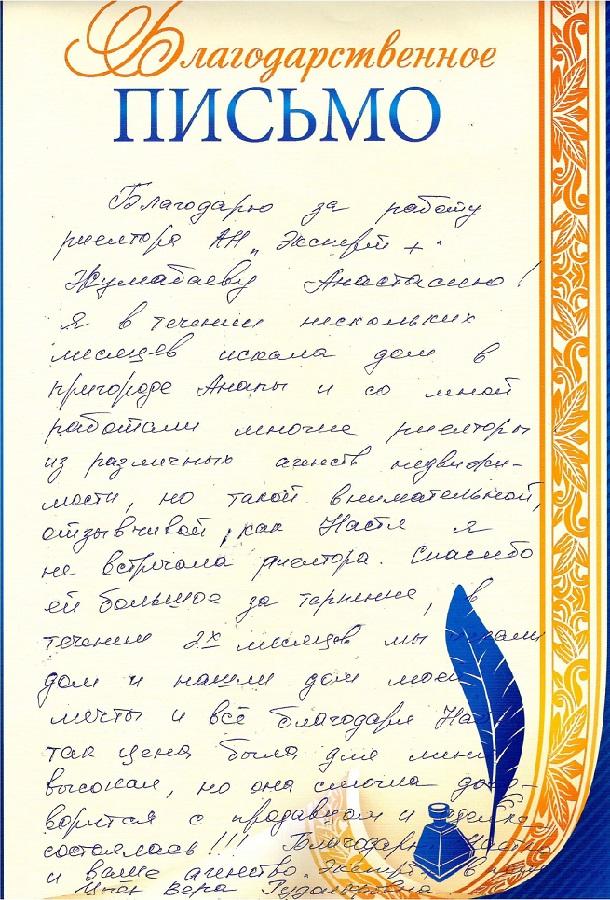 Благодарственное
ПИСЬМО
Благодарю за работу
риелтора АН „Эксперт +"
Жумабаеву Анастасию!
Я в течении нескольких
месяцев искала дом в
пригороде Анапы и со мной
работали многие риелторы
из различных агенств недвижи-
мости, но такой внимательной,
отзывчивой, как Настя я
не встречала риелтора. Спасибо
ей большое за терпение, в
течении 2х месяцев мы искали
дом и нашли дом моей
мечты и всё благодаря
так цена была для меня
высокая, но она смогла дого-
ворится с продавцом и сделка
состоялась!!! Благодарю Настю
и ваше агенство „Эксперт"
Вера Рудольфовна